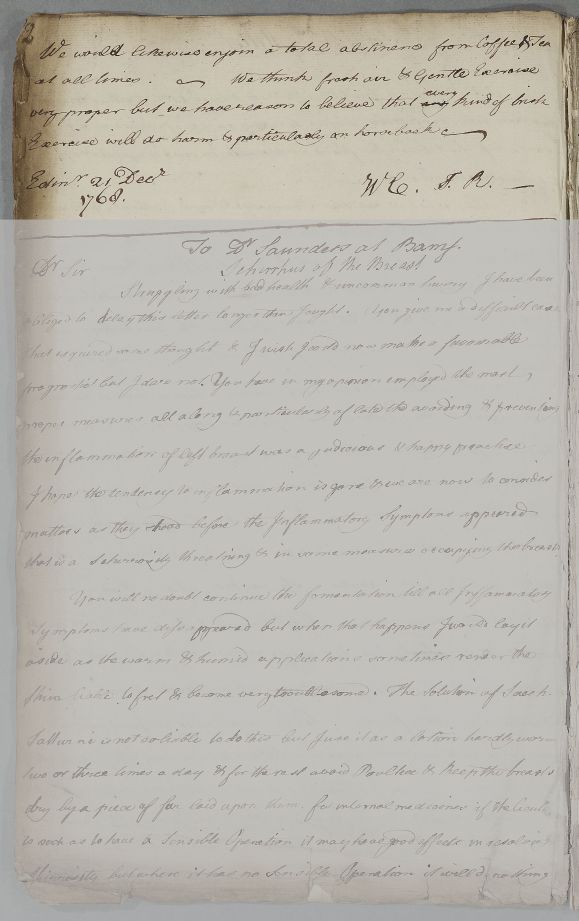 2
We would likewise enjoin a total abstinence from Coffee & Tea
at all times. We think fresh air & Gentle Exercise
very proper but we have reason to believe that every kind of brisk
Exercise will do harm & particularly on horseback
Edinr. 21 Decr.
1768.
WC. J. R.
To Dr Saunders at Bamf.
Schirrhus of the Breast
Dr Sir
Struggling with bad health & uncommon hurry I have been
obliged to delay this letter longer than I ought. You give me a difficult case
that required some thought & I wish I could now make a favourable
prognostick but I dare not. You have in my opinion employed the most
proper measures all along & particularly of late the avoiding & preventing
the inflammation of left breast was a judicious & happy practice
I hope the tendency to inflammation is gone & we are now to consider
matters as they stood before the Inflammatory Symptoms appeared
that is a threatning & in some measure occupying the breasts
You will no doubt continue the fomentation till all Inflammatory
Symptoms have disappeared but when that happens I would lay it
aside as the warm & humid applications sometimes render the
Skin liable to fret & become very troublesome. The Solution of Sacch.
Saturni is not so liable to do this but I use it as a lotion hardly
two or three times a day & for the rest avoid Poultice & keep the breasts
dry by a piece of fur laid upon them. for internal medicines if the Cicuta
is such as to have a Sensible Operation it may have good effects in resolving
but where it has no Sensible Operation it will do nothing